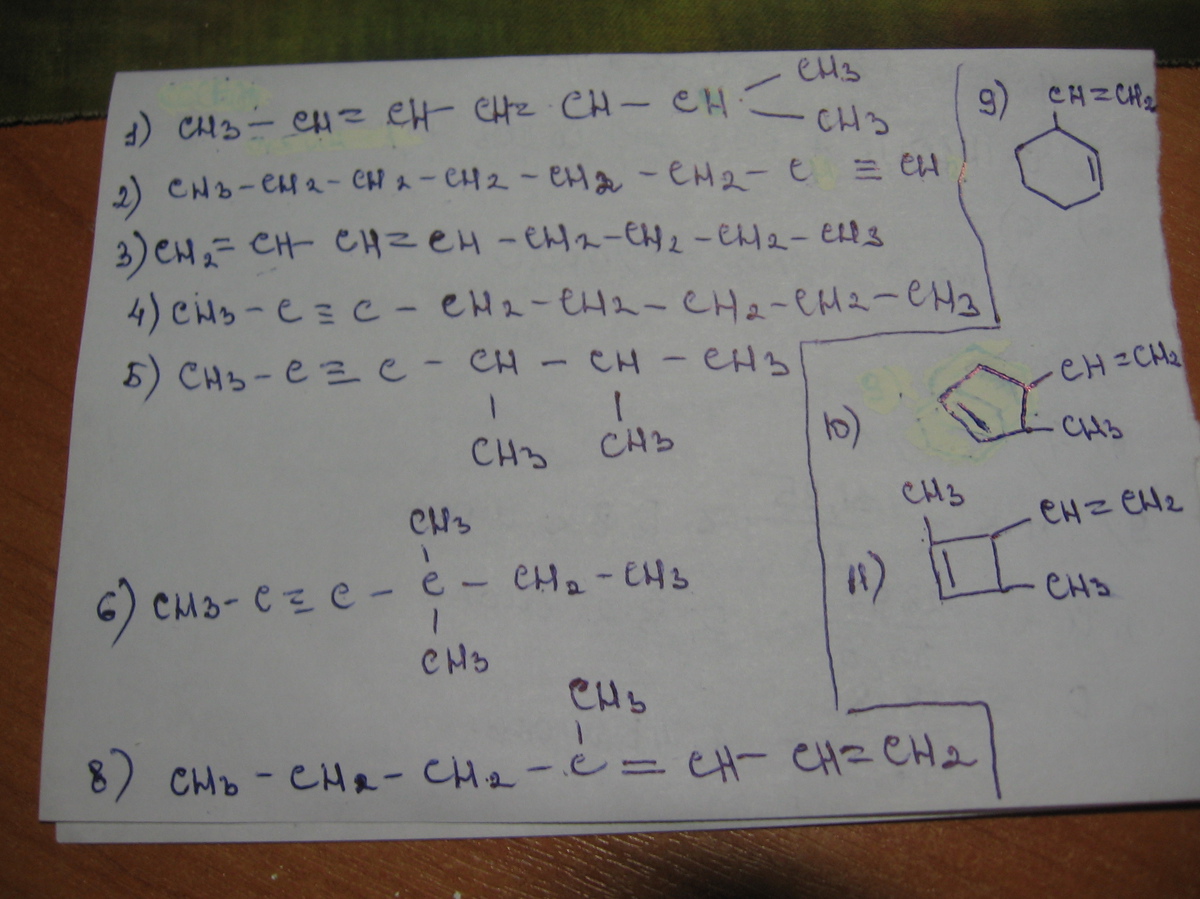 1) CH3 - CH = CH - CH = CH - CH
CH3
CH3
2) CH3 - CH2 - CH2 - CH2 - CH2 - CH2 - C ≡ CH
3) CH2 = CH - CH = CH - CH2 - CH2 - CH2 - CH3
4) CH3 - C ≡ C - CH2 - CH2 - CH2 - CH2 - CH3
5) CH3 - C ≡ C - CH - CH - CH3
CH3 CH3
CH3
6) CH3 - C ≡ C - C - CH2 - CH3
CH3
CH3
8) CH3 - CH2 - CH2 - C = CH - CH = CH2
9) CH = CH2
CH = CH2
10) CH3
CH3
CH = CH2
11) CH3